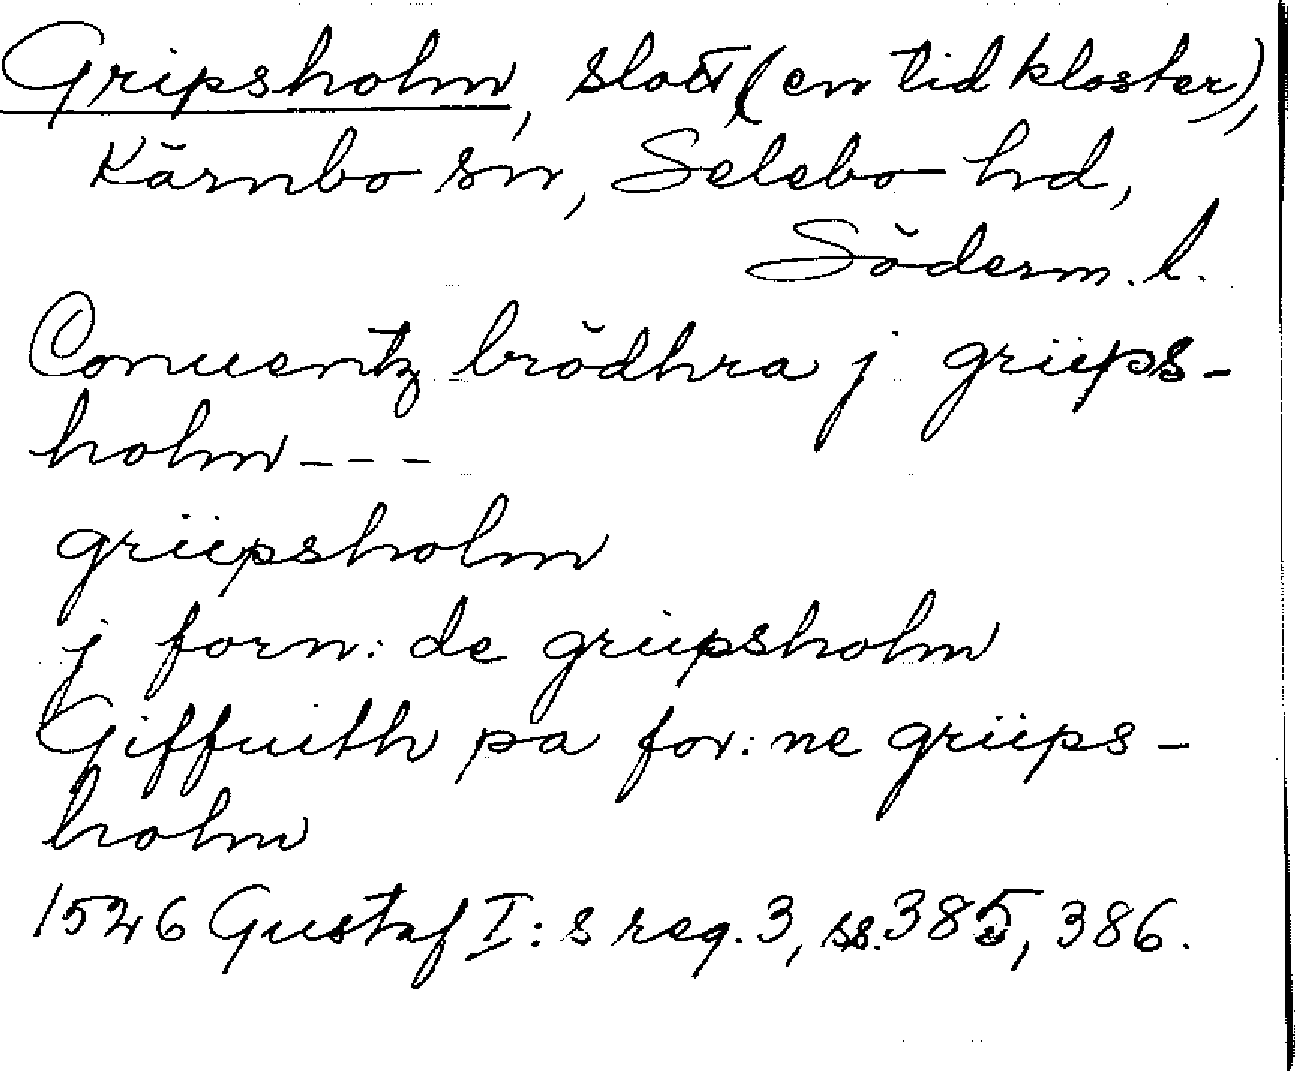 Gripsholm, slott (en tid kloster),
Kärnbo sn, Selebo hd,
Söderm. l.
Conuentz brödhra j griips-
holm - - -
griipsholm
j forn: de griipsholm
Giffuith pa for: ne griips-
holm
1526 Gustaf I: s reg. 3, ss. 385, 386.